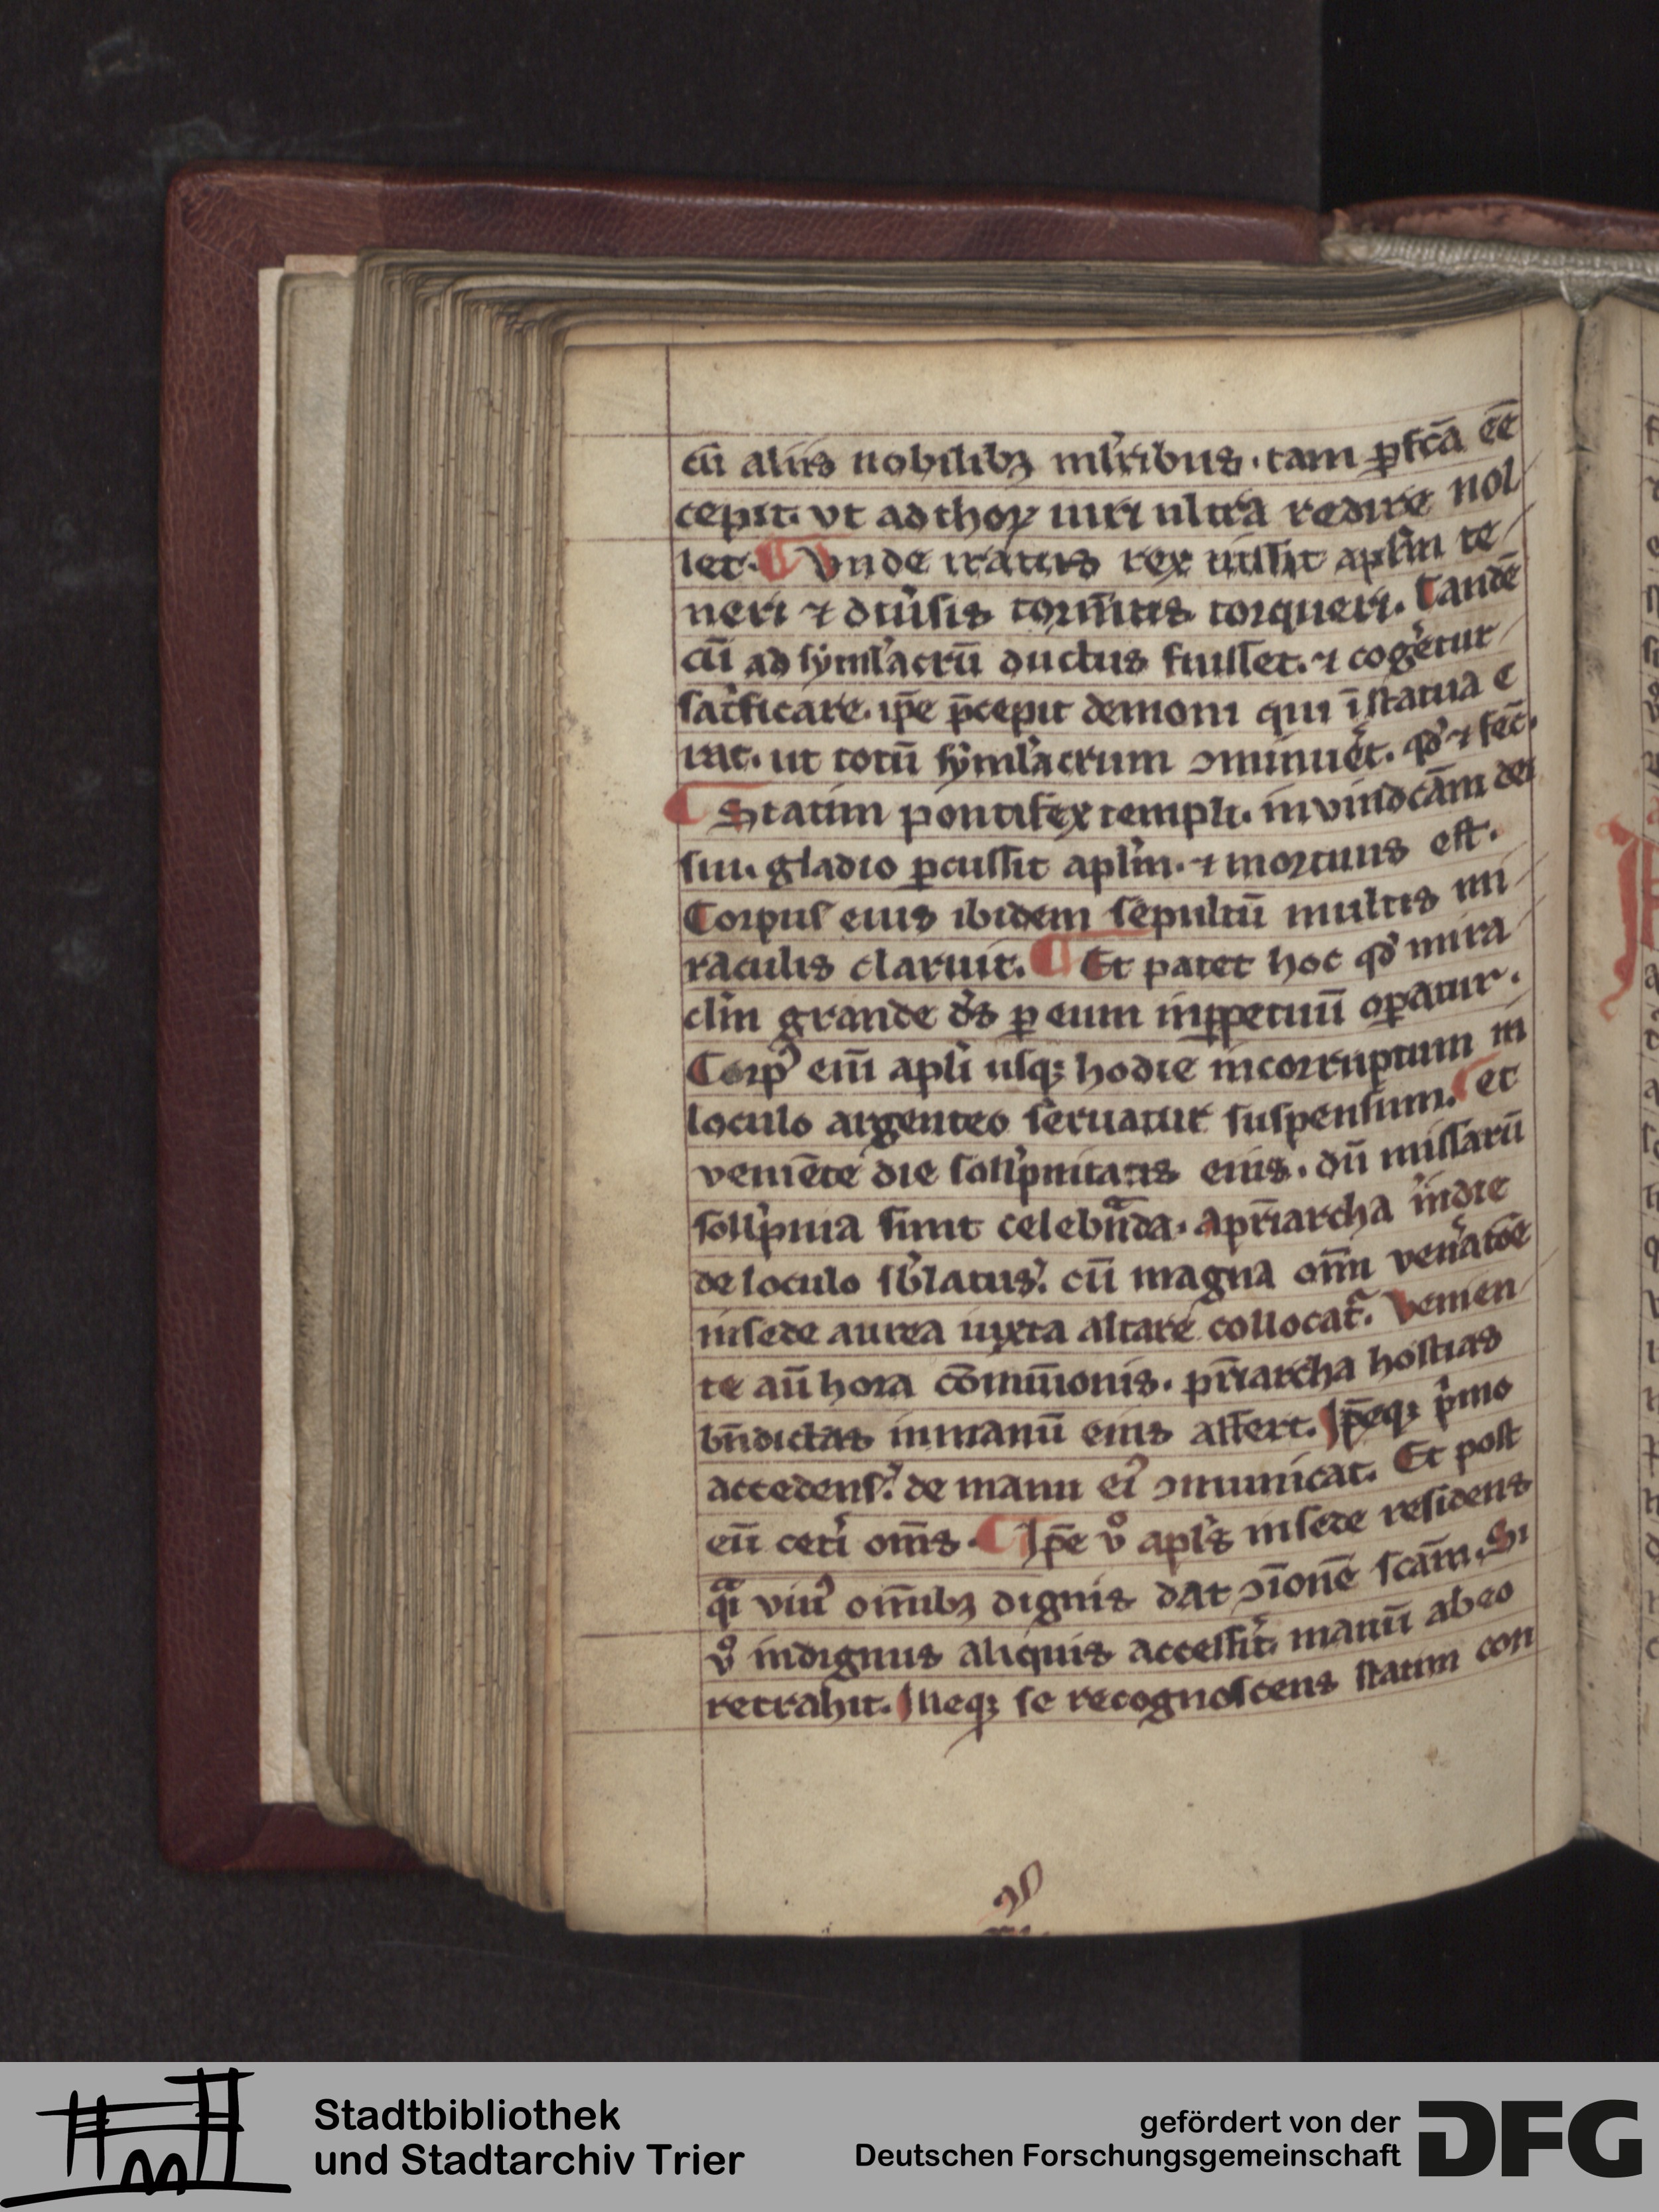 cū aliis nobilibꝫ ml̓ribus. tam ꝑfcā ēē
cepit. vt ad thoꝝ uiri ultra redire nol
let. ¶ Vnde iratus rex uissit apl̓m te
neri ⁊ diu̓sis torm̄tis torqueri. Tandē
cū ad sẏml̓acrū ductus fuisset. ⁊ cog̓etur
sac̓ficare. ip̄e p̄cepit demoni qui ī statua e
rat. ut totū sẏml̓acrum ↄminuēt. qd̓ ⁊ fec̄.
¶ Statim pontifex templi. in vindcām dei
sui. gladio ꝑcussit apl̓m. ⁊ mortuus est.
Corpus eius ibidem sepultū multis mi
raculis claruit. ¶ Et patet hoc qd̓ mira
cl̓m grande d̓s ꝑ eum inꝑpetuū oꝑatur.
Corpꝰ em̄ apl̓i usqꝫ hodie incorruptum in
loculo argenteo seruatur suspensum. et
veniēte die soll̓pnitatis eius. dū missarū
soll̓pnia sunt celebn̄da. apr̄iarcha īndie
de loculo sb̓latus. cū magna om̄m ven̓atōe
insede aurea iuxta altare collocat᷑. Venien
te aū hora cōmūionis. pr̄iarcha hostias
bn̄dictas inmanū eius affert. Ip̄eqꝫ p̓mo
accedens. de manu eiꝰ ↄmunicat. Et post
eū cet̓i om̄s. ¶ Ip̄e v̊ apl̓s insede residens
qᷓi viuꝰ om̄ibꝫ dignis dat ↄ̄ionē scām. Si
v̊ indignus aliquis accessit̓. manū abeo
retrahit. Illeqꝫ se recognoscens statim con
Stadtbibliothek
und Stadtarchiv Trier
gefördert von der
Deutschen Forschungsgemeinschaft
DFG